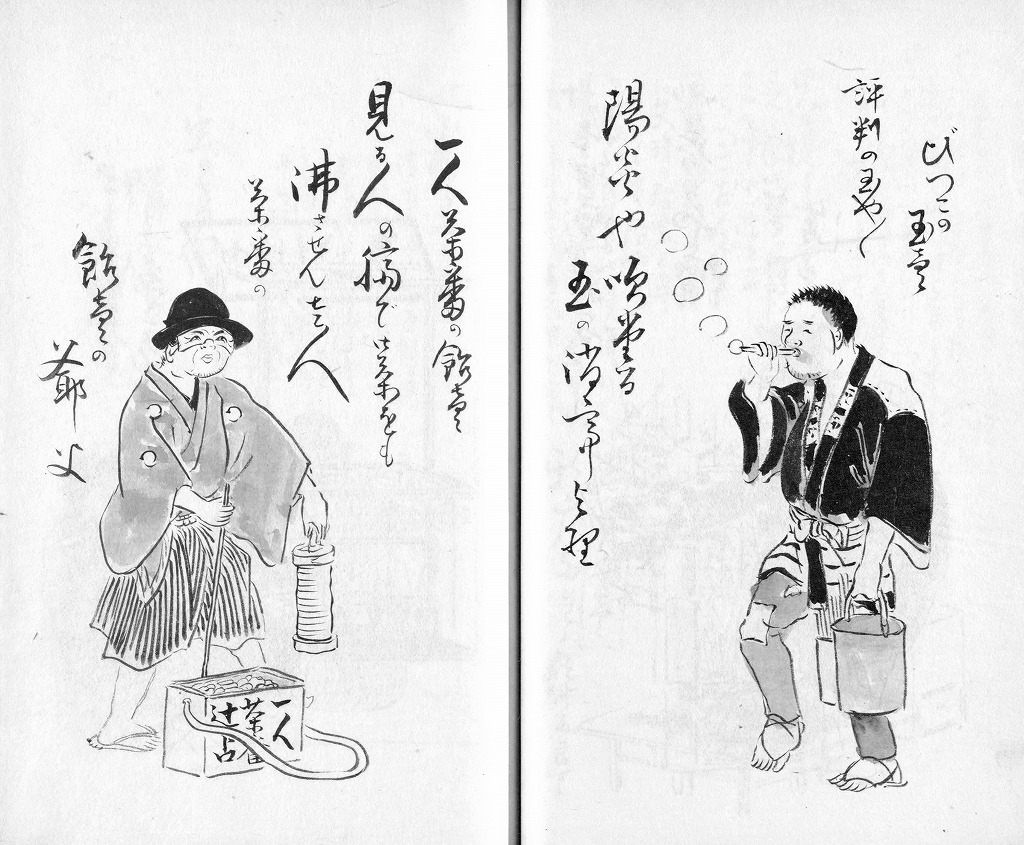 びつこの玉売
評判の玉や〱
陽炎や吹出る
玉の消
一人茶番の飴売
見る人の臍で茶をも
沸させん
茶番の
飴売の
爺父
一人
茶番
辻占